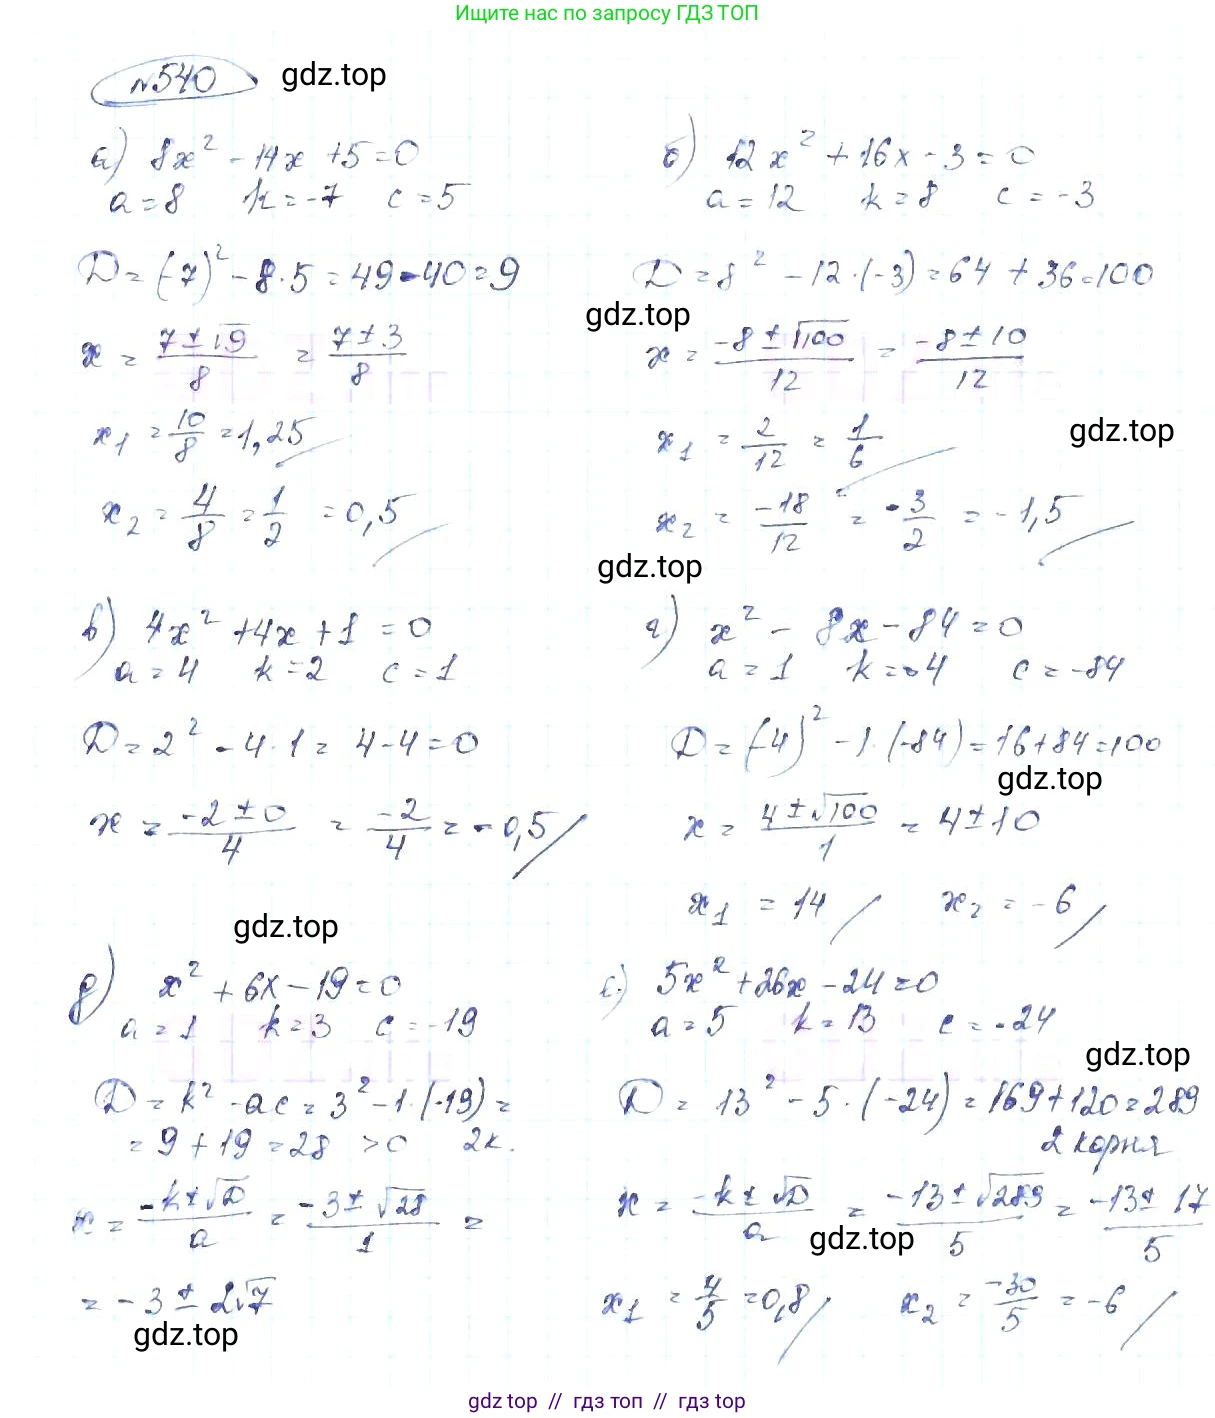 Ищите нас по запросу ГДЗ ТОП
№540 gdz.top
а) 8x² - 14x + 5 = 0
a = 8 k = -7 c = 5
D = (-7)² - 8·5 = 49 - 40 = 9
x = (7 ± √9)/8 = (7 ± 3)/8
x₁ = 10/8 = 1,25
x₂ = 4/8 = 1/2 = 0,5
б) 12x² + 16x - 3 = 0
a = 12 k = 8 c = -3
D = 8² - 12·(-3) = 64 + 36 = 100
gdz.top
x = (-8 ± √100)/12 = (-8 ± 10)/12
x₁ = 2/12 = 1/6
gdz.top
x₂ = -18/12 = -3/2 = -1,5
gdz.top
в) 4x² + 4x + 1 = 0
a = 4 k = 2 c = 1
D = 2² - 4·1 = 4 - 4 = 0
x = (-2 ± 0)/4 = -2/4 = -0,5
г) x² - 8x - 84 = 0
a = 1 k = -4 c = -84
D = (-4)² - 1·(-84) = 16 + 84 = 100
gdz.top
x = (4 ± √100)/1 = 4 ± 10
x₁ = 14 x₂ = -6
gdz.top
д) x² + 6x - 19 = 0
a = 1 k = 3 c = -19
D = k² - ac = 3² - 1·(-19) =
= 9 + 19 = 28 > 0 2к.
x = (-k ± √D)/a = (-3 ± √28)/1 =
= -3 ± 2√7
gdz.top
е) 5x² + 26x - 24 = 0
a = 5 k = 13 c = -24
gdz.top
D = 13² - 5·(-24) = 169 + 120 = 289
2 корня
x = (-k ± √D)/a = (-13 ± √289)/5 = (-13 ± 17)/5
gdz.top
x₁ = 4/5 = 0,8 x₂ = -30/5 = -6
gdz top // гдз топ // gdz top